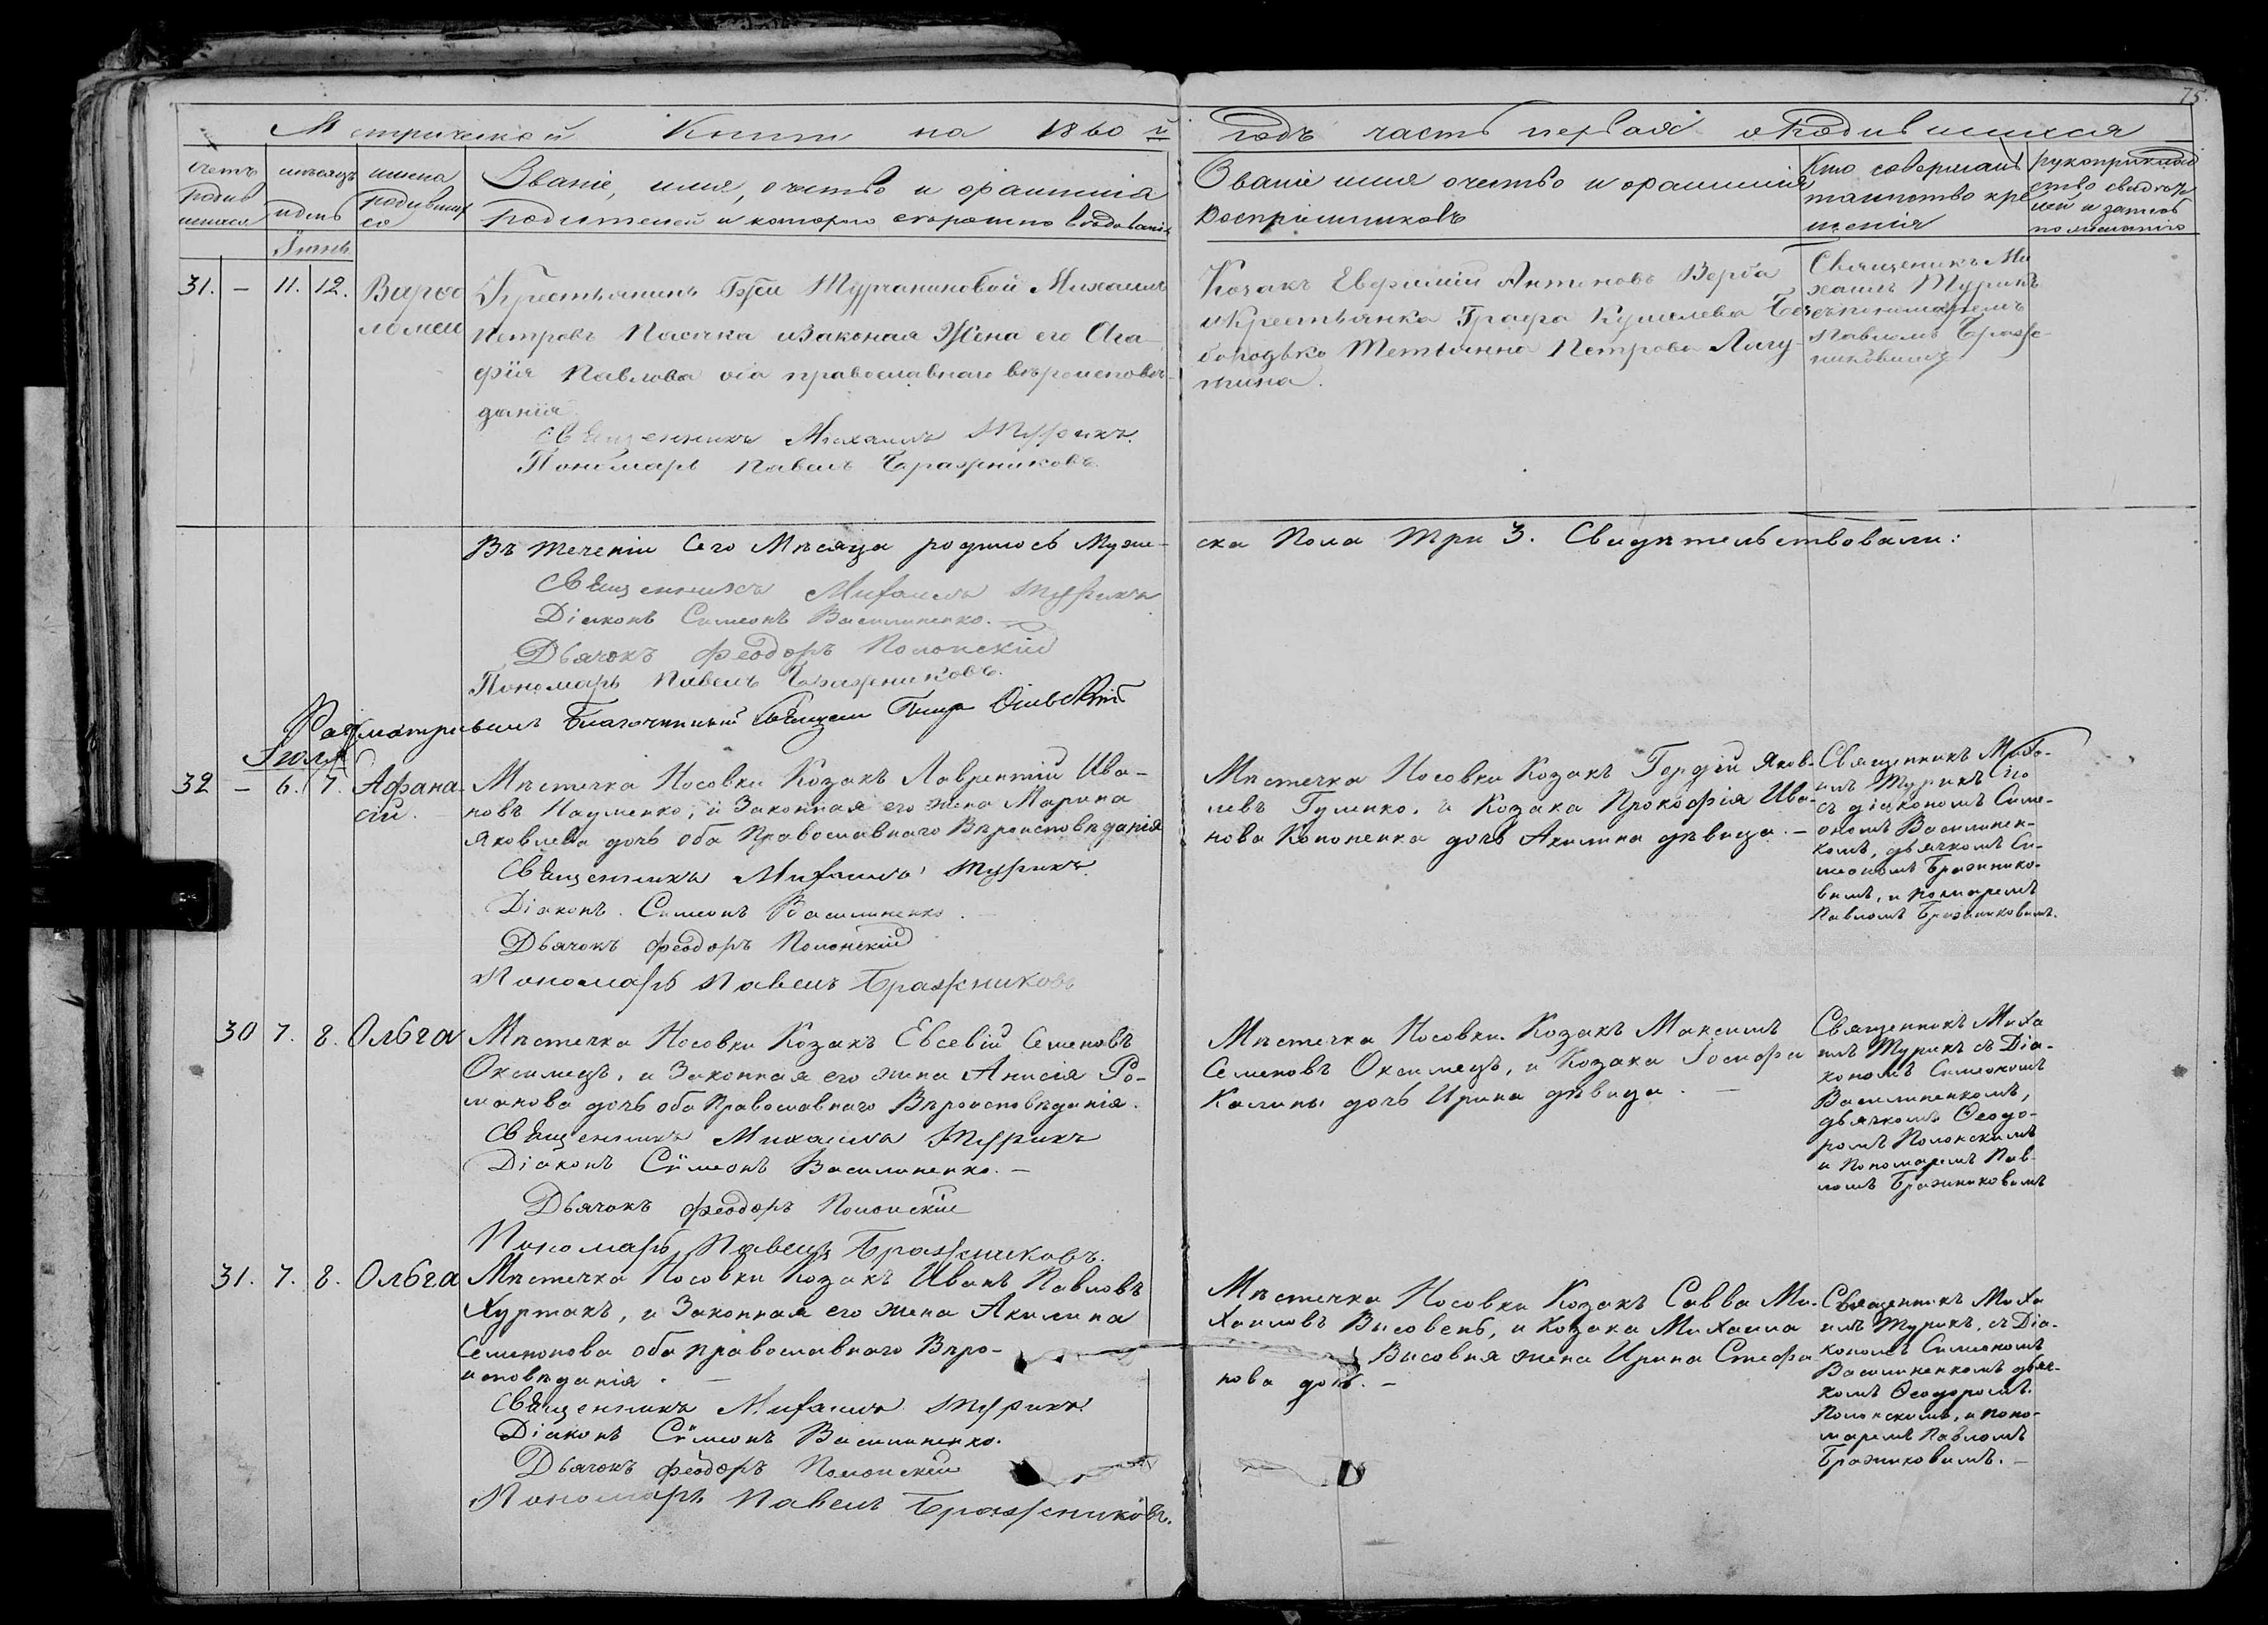 75.
Метрической Книги на 1860 й годъ часть первая о Родившихся
счетъ родив шихся
мѣсяцъ и день
имена родивших ся
Званіе, имя, отчество и фамилія
родителей и которого вѣроисповѣданія
Званіе имя отчество и фамилия
воспріемниковъ
Кто совершалъ
таинство кре
щенія
рукоприклад
ство свидѣте
лей
Іюнь
31. – 11. 12. Варѳо
ломей
Крестьянинъ Михаилъ
Петровъ Пасечка и Законая Жена его Ага
фія Павлова оба православнаго вѣроисповѣ
данія
Священникъ Михаилъ Турикъ.
Пономарь Павелъ Бражниковъ.
Козакъ Евфимій Антоновъ Верба
и Крестьянка Графа Кушелева Без
бородько Петрова
Священикъ Ми
хаилъ Турикъ
съ пономаремъ
Павломъ Браж
никовымъ
Въ теченіи Сего Мѣсяца родилось Муже-
ска Пола три 3. Свидѣтельствовали:
Священникъ Михаилъ Турикъ
Діаконъ Симеонъ Василиненко.
Дьячокъ Феодоръ Полонскій
Пономарь Павелъ Бражниковъ.
Разматривалъ Благочинный Священ
Іюля
32 – 6. 7. Афана-
сій.
Мѣстечка Носовки Козакъ Лаврентій Ива-
новъ Науменко, и Законная его жена Марина
Яковлева дочь оба Православнаго Вѣроисповѣданія
Священникъ Михаилъ Турикъ.
Діаконъ Симеонъ Василиненко.
Дьячокъ Феодоръ Полонскій
Пономарь Павелъ Бражниковъ
Мѣстечка Носовки Козакъ Гордѣй Яков-
левъ Гуленко, и Козака Прокофія Ива-
нова Кононенка дочь Акилина дѣвица. –
Священникъ Миха-
илъ Турикъ
съ діакономъ Симе-
ономъ Василинен-
комъ, дьячкомъ Си-
меономъ Бражнико-
вымъ, и помаремъ
Павломъ Бражниковымъ.
30 7. 8. Ольга
Мѣстечка Носовки Козакъ Евсевій Семеновъ
Оксимецъ, и Законная его жена Анисія Ро-
манова дочь оба Православнаго Вѣроисповѣданія.
Священникъ Михаилъ Турикъ
Діаконъ Сѵмеонъ Василиненко. –
Дьячокъ Феодоръ Полонскій
Пономарь Павелъ Бражниковъ.
Мѣстечка Носовки Козакъ Максимъ
Семеновъ Оксимецъ, и Козака Іосифа
Калины дочь Ирина дѣвица. –
Священникъ Миха
илъ Турикъ съ Діа-
кономъ Симеономъ
Василиненкомъ,
дьячкомъ Ѳеодо-
ромъ Полонскимъ
и Пономаремъ Пав-
ломъ Бражниковымъ
31. 7. 8. Ольга
Мѣстечка Носовки Козакъ Иванъ Павловъ
Хуртакъ, и Законная его жена Акилина
Семионова оба православнаго Вѣро-
исповѣданія. –
Священникъ Михаилъ Турикъ.
Діаконъ Сѵмеонъ Василиненко.
Дьячокъ Феодоръ Полонскій
Пономарь Павелъ Бражниковъ.
Мѣстечка Носовки Козакъ Савва Ми-
хаиловъ Высовень, и Козака Михаила
Высовня жена Ирина Стефа-
нова дочь. –
Священникъ Миха
илъ Турикъ, съ Діа-
кономъ Симеономъ
Василиненкомъ дьяч-
комъ Ѳеодоромъ
Полонскимъ, и поно-
маремъ Павломъ
Бражниковымъ. –